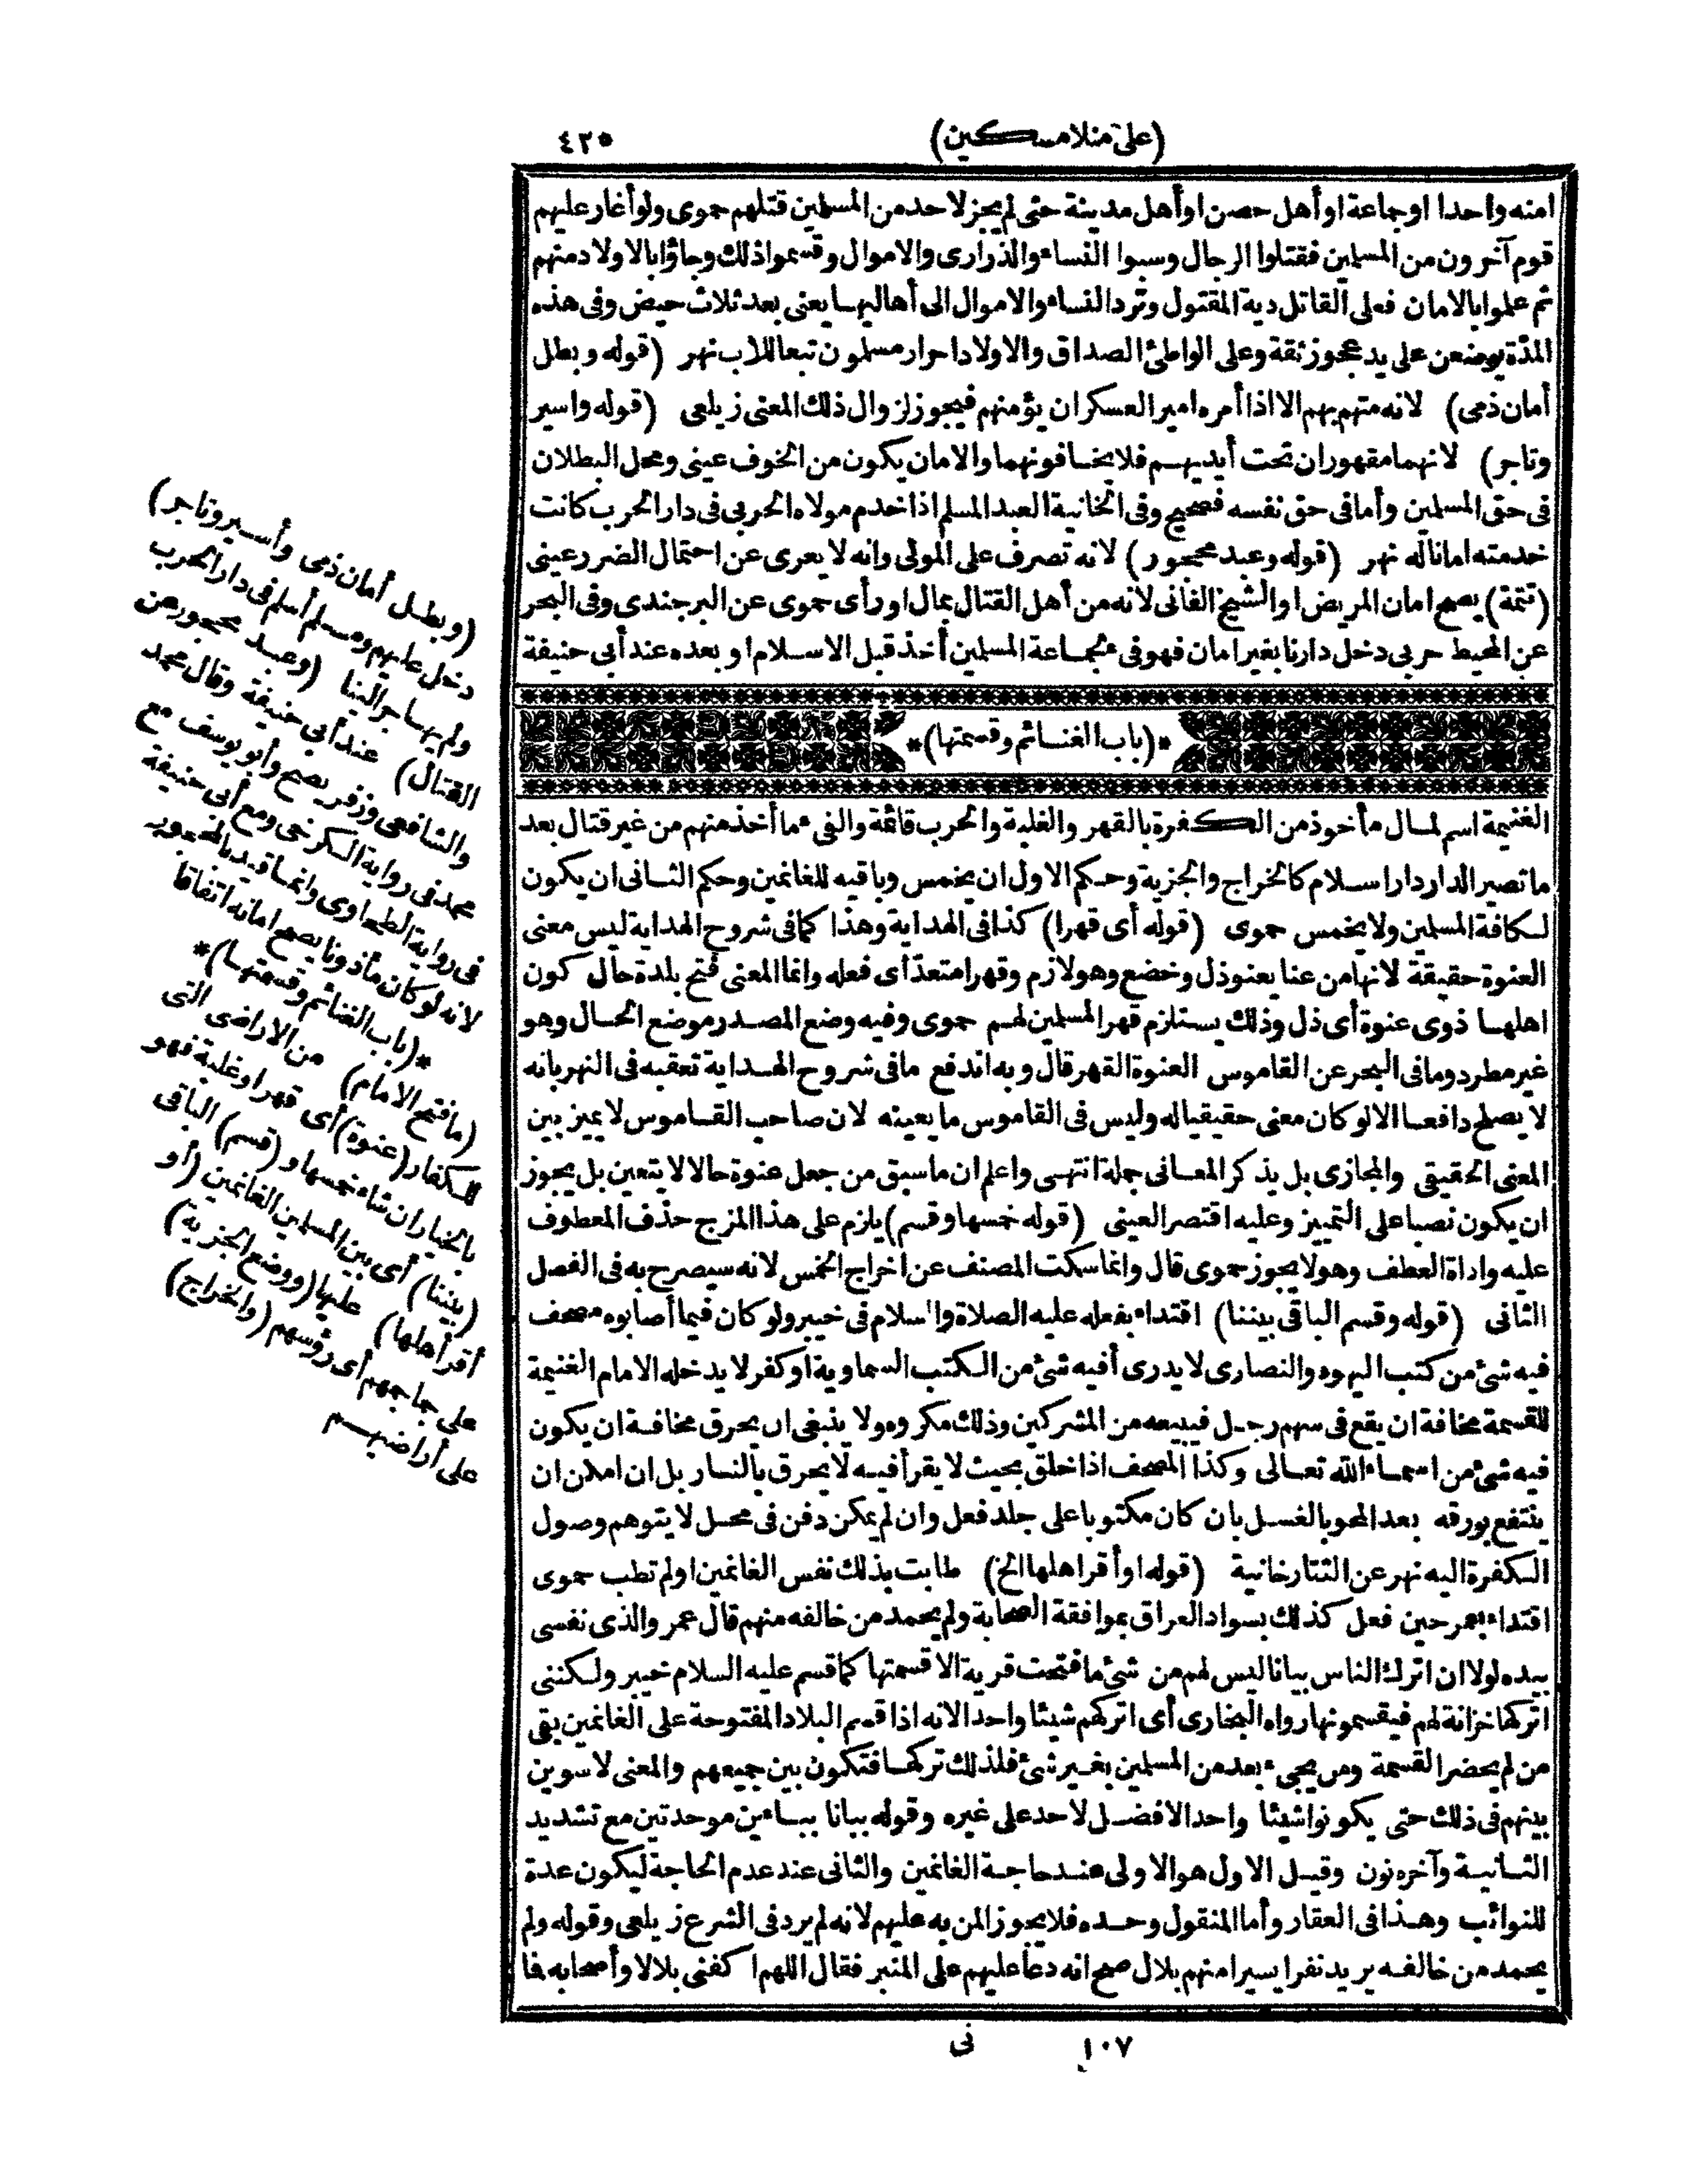 (على منلا مسكين)
٤٢٥
امنه واحدا اوجماعة او أهل حصن او أهل مدينة حتى لم يجز لاحد من المسلمين قتلهم حموى ولو أغار عليهم
قوم آخرون من المسلمين فقتلوا الرجال وسبوا النساء والذرارى والاموال وقسموا ذلك وجاؤا بالاولاد منهم
ثم علموا بالامان فعلى القاتل دية المقتول وترد النساء والاموال الى أهاليها يعنى بعد ثلاث حيض وفى هذه
المدّة يوضعن على يد عجوز ثقة وعلى الواطئ الصداق والاولاد احرار مسلمون تبعا للاب نهر (قوله وبطل
أمان ذمى) لانه متهم بهم الا اذا أمره امير العسكر ان يؤمنهم فيجوز لزوال ذلك المعنى زيلعى (قوله واسير
وتاجر) لانهما مقهوران تحت أيديهم فلا يخافونهما والامان يكون من الخوف عينى ومحل البطلان
فى حق المسلمين وأما فى حق نفسه فصحيح وفى الخانية العبد المسلم اذا خدم مولاه الحربى فى دار الحرب كانت
خدمته امانا له نهر (قوله وعبد محجور) لانه تصرف على المولى وانه لا يعرى عن احتمال الضرر عينى
(تتمة) يصح امان المريض او الشيخ الفانى لانه من أهل القتال بمال او رأى حموى عن البرجندى وفى البحر
عن المحيط حربى دخل دارنا بغير امان فهو فىء لجماعة المسلمين أخذ قبل الاسلام او بعده عند أبى حنيفة
*(باب الغنائم وقسمتها)*
الغنيمة اسم لمال مأخوذ من الكفرة بالقهر والغلبة والحرب قائمة والفىء ما أخذ منهم من غير قتال بعد
ما تصير الدار دار اسلام كالخراج والجزية وحكم الاول ان يخمس وباقيه للغانمين وحكم الثانى ان يكون
لكافة المسلمين ولا يخمس حموى (قوله أى قهرا) كذا فى الهداية وهذا كما فى شروح الهداية ليس معنى
العنوة حقيقة لانها من عنا يعنو ذل وخضع وهو لازم وقهرا متعدّ أى فعله وانما المعنى فتح بلدة حال كون
اهلها ذوى عنوة أى ذل وذلك يستلزم قهر المسلمين لهم حموى وفيه وضع المصدر موضع الحال وهو
غير مطرد وما فى البحر عن القاموس العنوة القهر قال وبه اندفع ما فى شروح الهداية تعقبه فى النهر بانه
لا يصلح دافعا الا لو كان معنى حقيقيا له وليس فى القاموس ما يعينه لان صاحب القاموس لا يميز بين
المعنى الحقيقى والمجازى بل يذكر المعانى جملة انتهى واعلم ان ما سبق من جعل عنوة حالا لا يتعين بل يجوز
ان يكون نصبا على التمييز وعليه اقتصر العينى (قوله خمسها وقسم) يلزم على هذا المزج حذف المعطوف
عليه واداة العطف وهو لا يجوز حموى قال وانما سكت المصنف عن اخراج الخمس لانه سيصرح به فى الفصل
الثانى (قوله وقسم الباقى بيننا) اقتداء بفعله عليه الصلاة والسلام فى خيبر ولو كان فيما أصابوه مصحف
فيه شئ من كتب اليهود والنصارى لا يدرى أفيه شئ من الكتب السماوية او كفر لا يدخله الامام الغنيمة
للقسمة مخافة ان يقع فى سهم رجل فيبيعه من المشركين وذلك مكروه ولا ينبغى ان يحرق مخافة ان يكون
فيه شئ من اسماء الله تعالى وكذا المصحف اذا خلق بحيث لا يقرأ فيه لا يحرق بالنار بل ان امكن ان
ينتفع بورقه بعد المحو بالغسل بان كان مكتوبا على جلد فعل وان لم يمكن دفن فى محل لا يتوهم وصول
الكفرة اليه نهر عن التتارخانية (قوله او أقر اهلها الخ) طابت بذلك نفس الغانمين او لم تطب حموى
اقتداء بعمر حين فعل كذلك بسواد العراق بموافقة الصحابة ولم يحمد من خالفه منهم قال عمر والذى نفسى
بيده لولا ان اترك الناس بيانا ليس لهم من شئ ما فتحت قرية الا قسمتها كما قسم عليه السلام خيبر ولكننى
اتركها خزانة لهم فيقسمونها رواه البخارى أى اتركهم شيئا واحدا لانه اذا قسم البلاد المفتوحة على الغانمين بقى
من لم يحضر القسمة ومن يجىء بعد من المسلمين بغير شئ فلذلك تركها فتكون بين جميعهم والمعنى لاسوين
بينهم فى ذلك حتى يكونوا شيئا واحدا لافضل لاحد على غيره وقوله بيانا بباءين موحدتين مع تشديد
الثانية وآخره نون وقيل الاول هو الاولى عند حاجة الغانمين والثانى عند عدم الحاجة ليكون عدة
للنوائب وهذا فى العقار وأما المنقول وحده فلا يجوز المن به عليهم لانه لم يرد فى الشرع زيلعى وقوله ولم
يحمد من خالفه يريد نفرا يسيرا منهم بلال صح انه دعا عليهم على المنبر فقال اللهم اكفنى بلالا وأصحابه فما
(وبطل أمان ذمى وأسير وتاجر)
دخل عليهم ومسلم أسلم فى دار الحرب
ولم يهاجر الينا (وعبد محجور عن
القتال) عند أبى حنيفة وقال محمد
والشافعى وزفر يصح وأبو يوسف مع
محمد فى رواية الكرخى ومع أبى حنيفة
فى رواية الطحاوى وانما قيد بالمحجور
لانه لو كان مأذونا يصح امانه اتفاقا
*(باب الغنائم وقسمتها)*
(ما فتح الامام) من الاراضى التى
للكفار (عنوة) أى قهرا وغلبة فهو
بالخيار ان شاء خمسها و(قسم) الباقى
(بيننا) أى بين المسلمين الغانمين (أو
أقر أهلها) عليها (ووضع الجزية)
على جماجمهم أى رؤسهم (والخراج)
على أراضيهم
١٠٧
نى